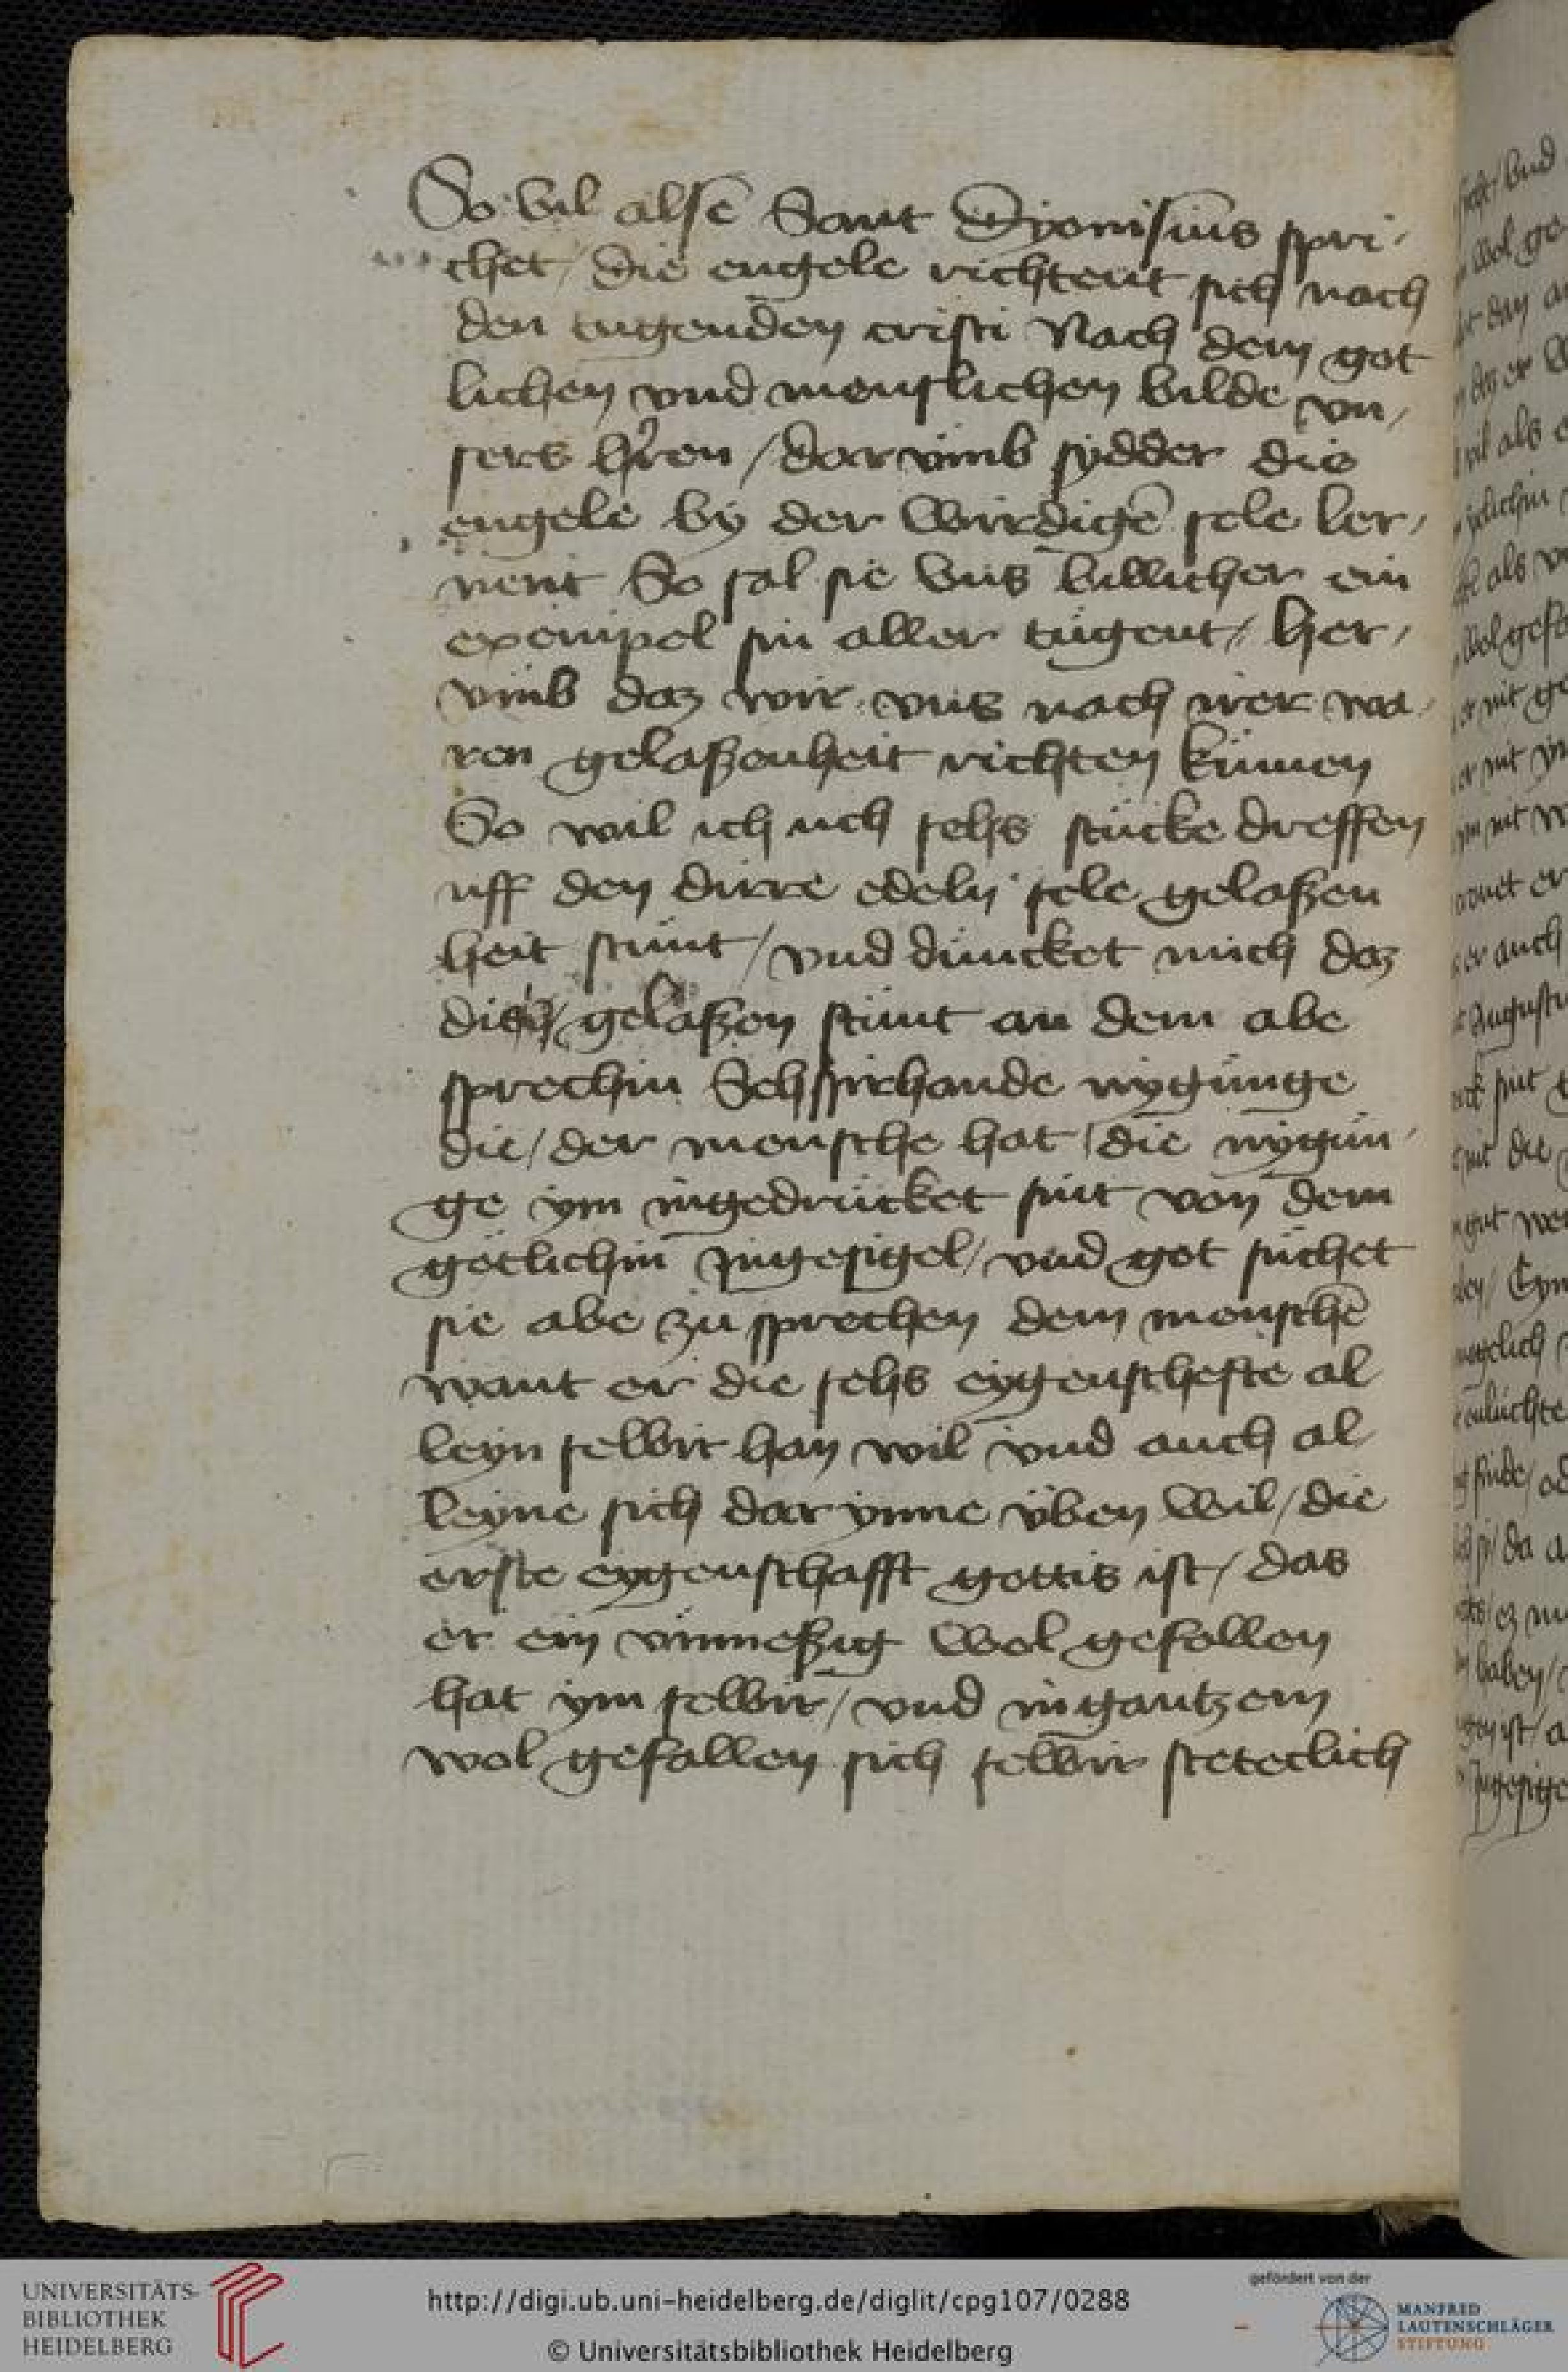 So vil alse Sant Dyonisius spri-
chet / die engele richtent sich nach
den tugenden cristi Nach dem got
lichen vnd menslichen bilde vn-
sers hʼren / dar vmb sydder die
engele by der wirdigē sele ler-
nent So sal sie vns billicher ein
exempel sin aller tugent / her-
vmb daz wir vns nach irer wa-
ren gelaßenheit richten kunnen
So wil ich uch sehs stucke dreffen
uff den dirre edeln sele gelaßen
heit stunt / vnd duncket mich daz
gelaßen stunt an dem abe
sprechin Sehsirhande nygunge
die / der mensche hat / die nygun-
ge ym ingedrucket sint von dem
gotlichin Ingesigel / vnd got suchet
sie abe zu sprechen dem menschē
want er die sehs eygenschefte al
leyn selbir han wil vnd auch al
leyne sich dar ynne vben wil / die
erste eygenschafft gottis ist / das
er ein vnmeßig wol gefallen
hat ym selbir / vnd in gantzem
wol gefallen sich selbir steteclich
UNIVERSITÄTS-
BIBLIOTHEK
HEIDELBERG
http://digi.ub.uni-heidelberg.de/diglit/cpg107/0288
© Universitätsbibliothek Heidelberg
gefördert von der
MANFRED
LAUTENSCHLÄGER
STIFTUNG